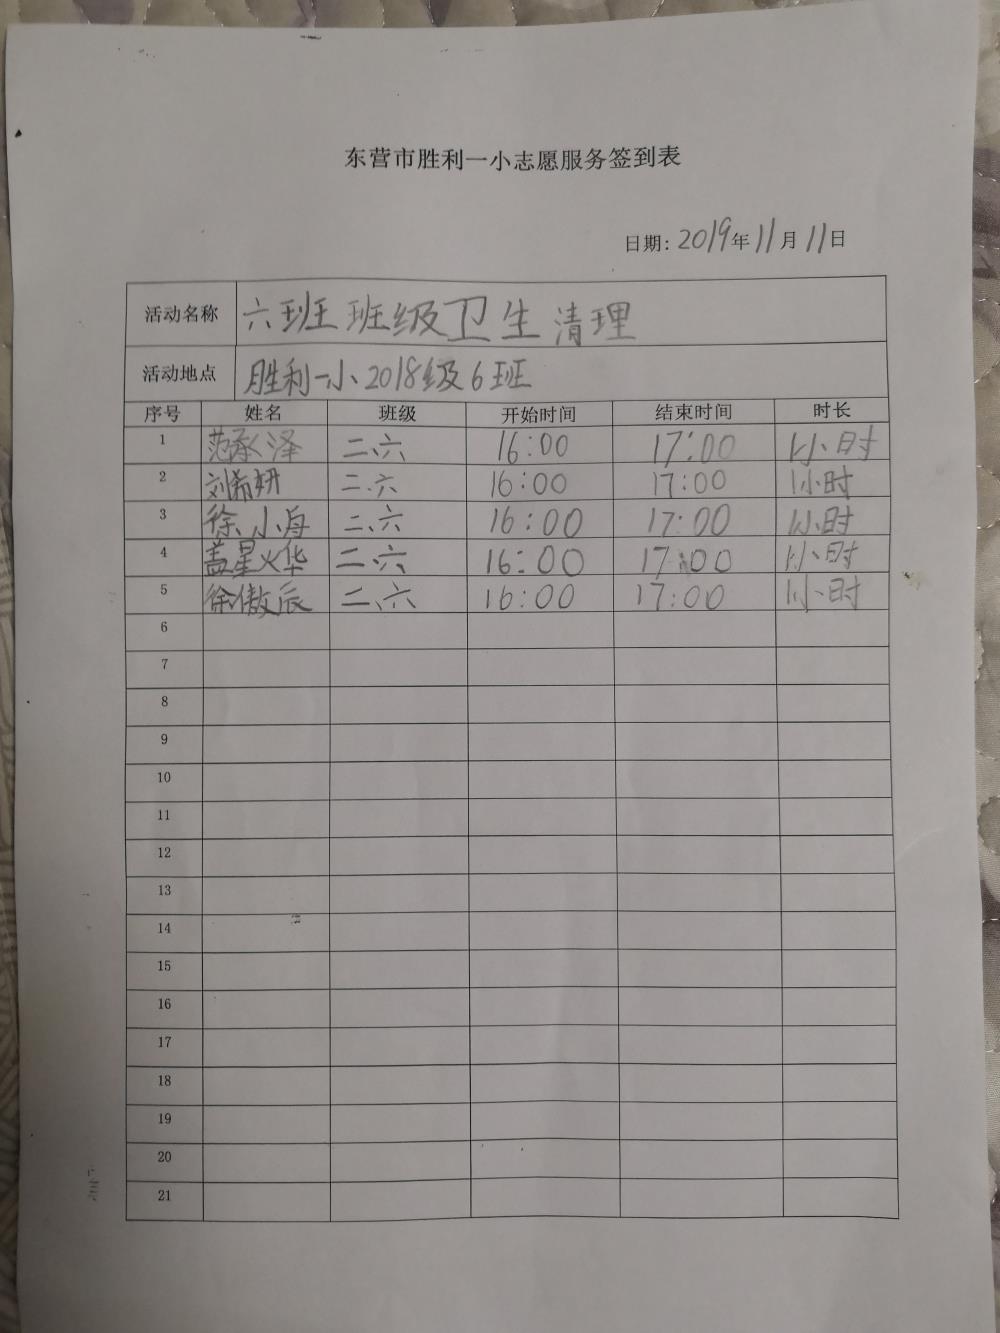 东营市胜利一小志愿服务签到表
日期: 2019年11月11日
活动名称 六班班级卫生清理
活动地点 胜利一小2018级6班
序号 姓名 班级 开始时间 结束时间 时长
1 范承泽 二、六 16:00 17:00 1小时
2 刘希妍 二、六 16:00 17:00 1小时
3 徐小舟 二、六 16:00 17:00 1小时
4 盖星火华 二、六 16:00 17:00 1小时
5 徐傲辰 二、六 16:00 17:00 1小时
6
7
8
9
10
11
12
13
14
15
16
17
18
19
20
21